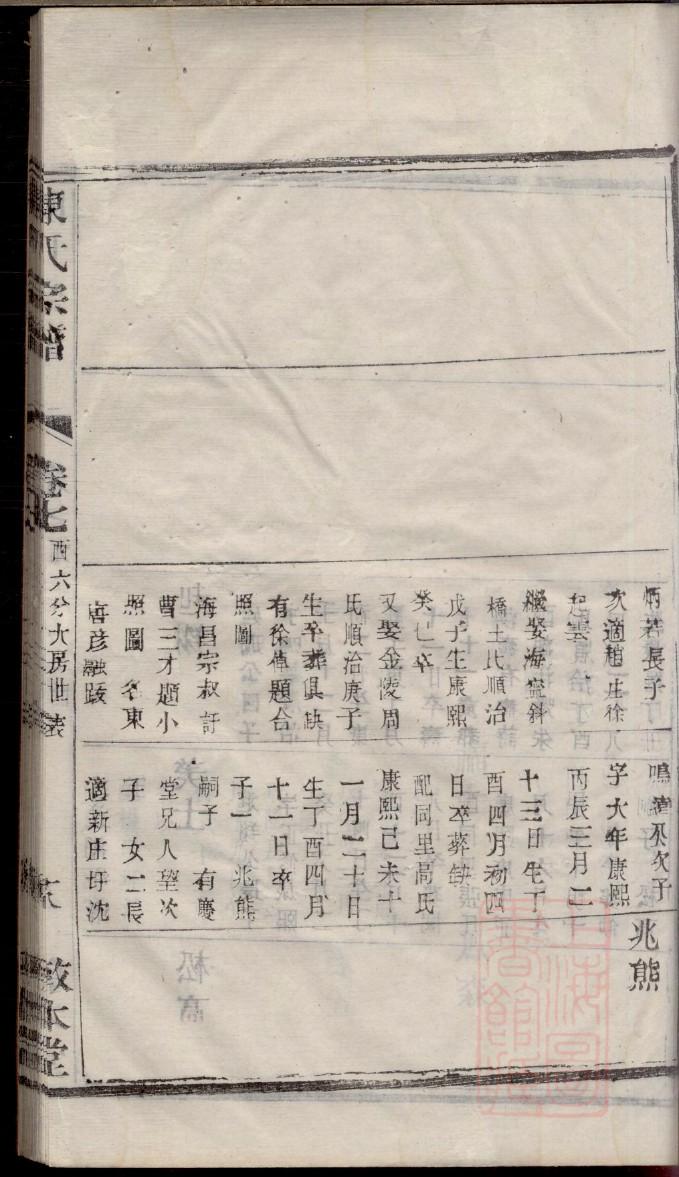 炳若長子
次適趙庄徐
起雲
繼娶海寧斜
橋土氏順治
戊子生康熙
癸七卒
又娶金陵周
氏順治庚子
生卒葬俱缺
有徐倬題合
照圖
海昌宗叔訏
曹三才題小
照圖 名東
唐彥融跋
鳴濤公次子
字大年康熙
丙辰三月二
十三日生丁
酉四月初四
日卒葬缺
配同里高氏
康熙己未十
一月二十日
生丁酉四月
十一日卒
子一 兆熊
嗣子 有慶
堂兄人望次
子 女二長
適新庄圩沈
兆熊
陳氏宗譜
卷七
酉六分大房世表
敦本堂